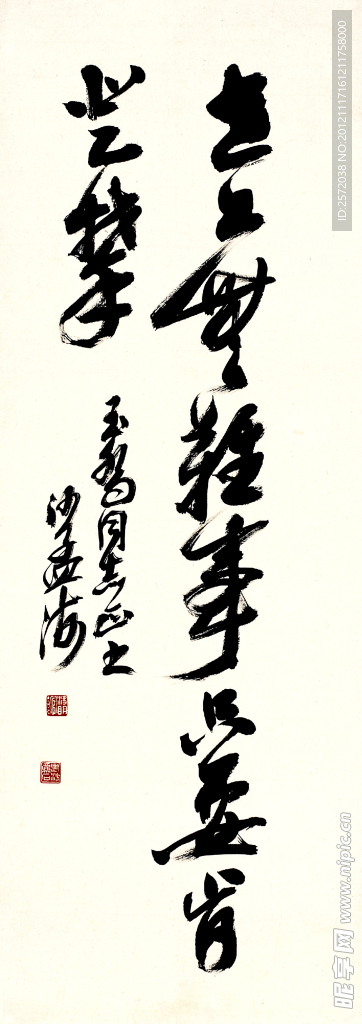 世上無難事只要肯
登攀
玉同志正之
沙孟海
ID:2572038 NO:20121117161211758000
昵享网 www.nipic.cn